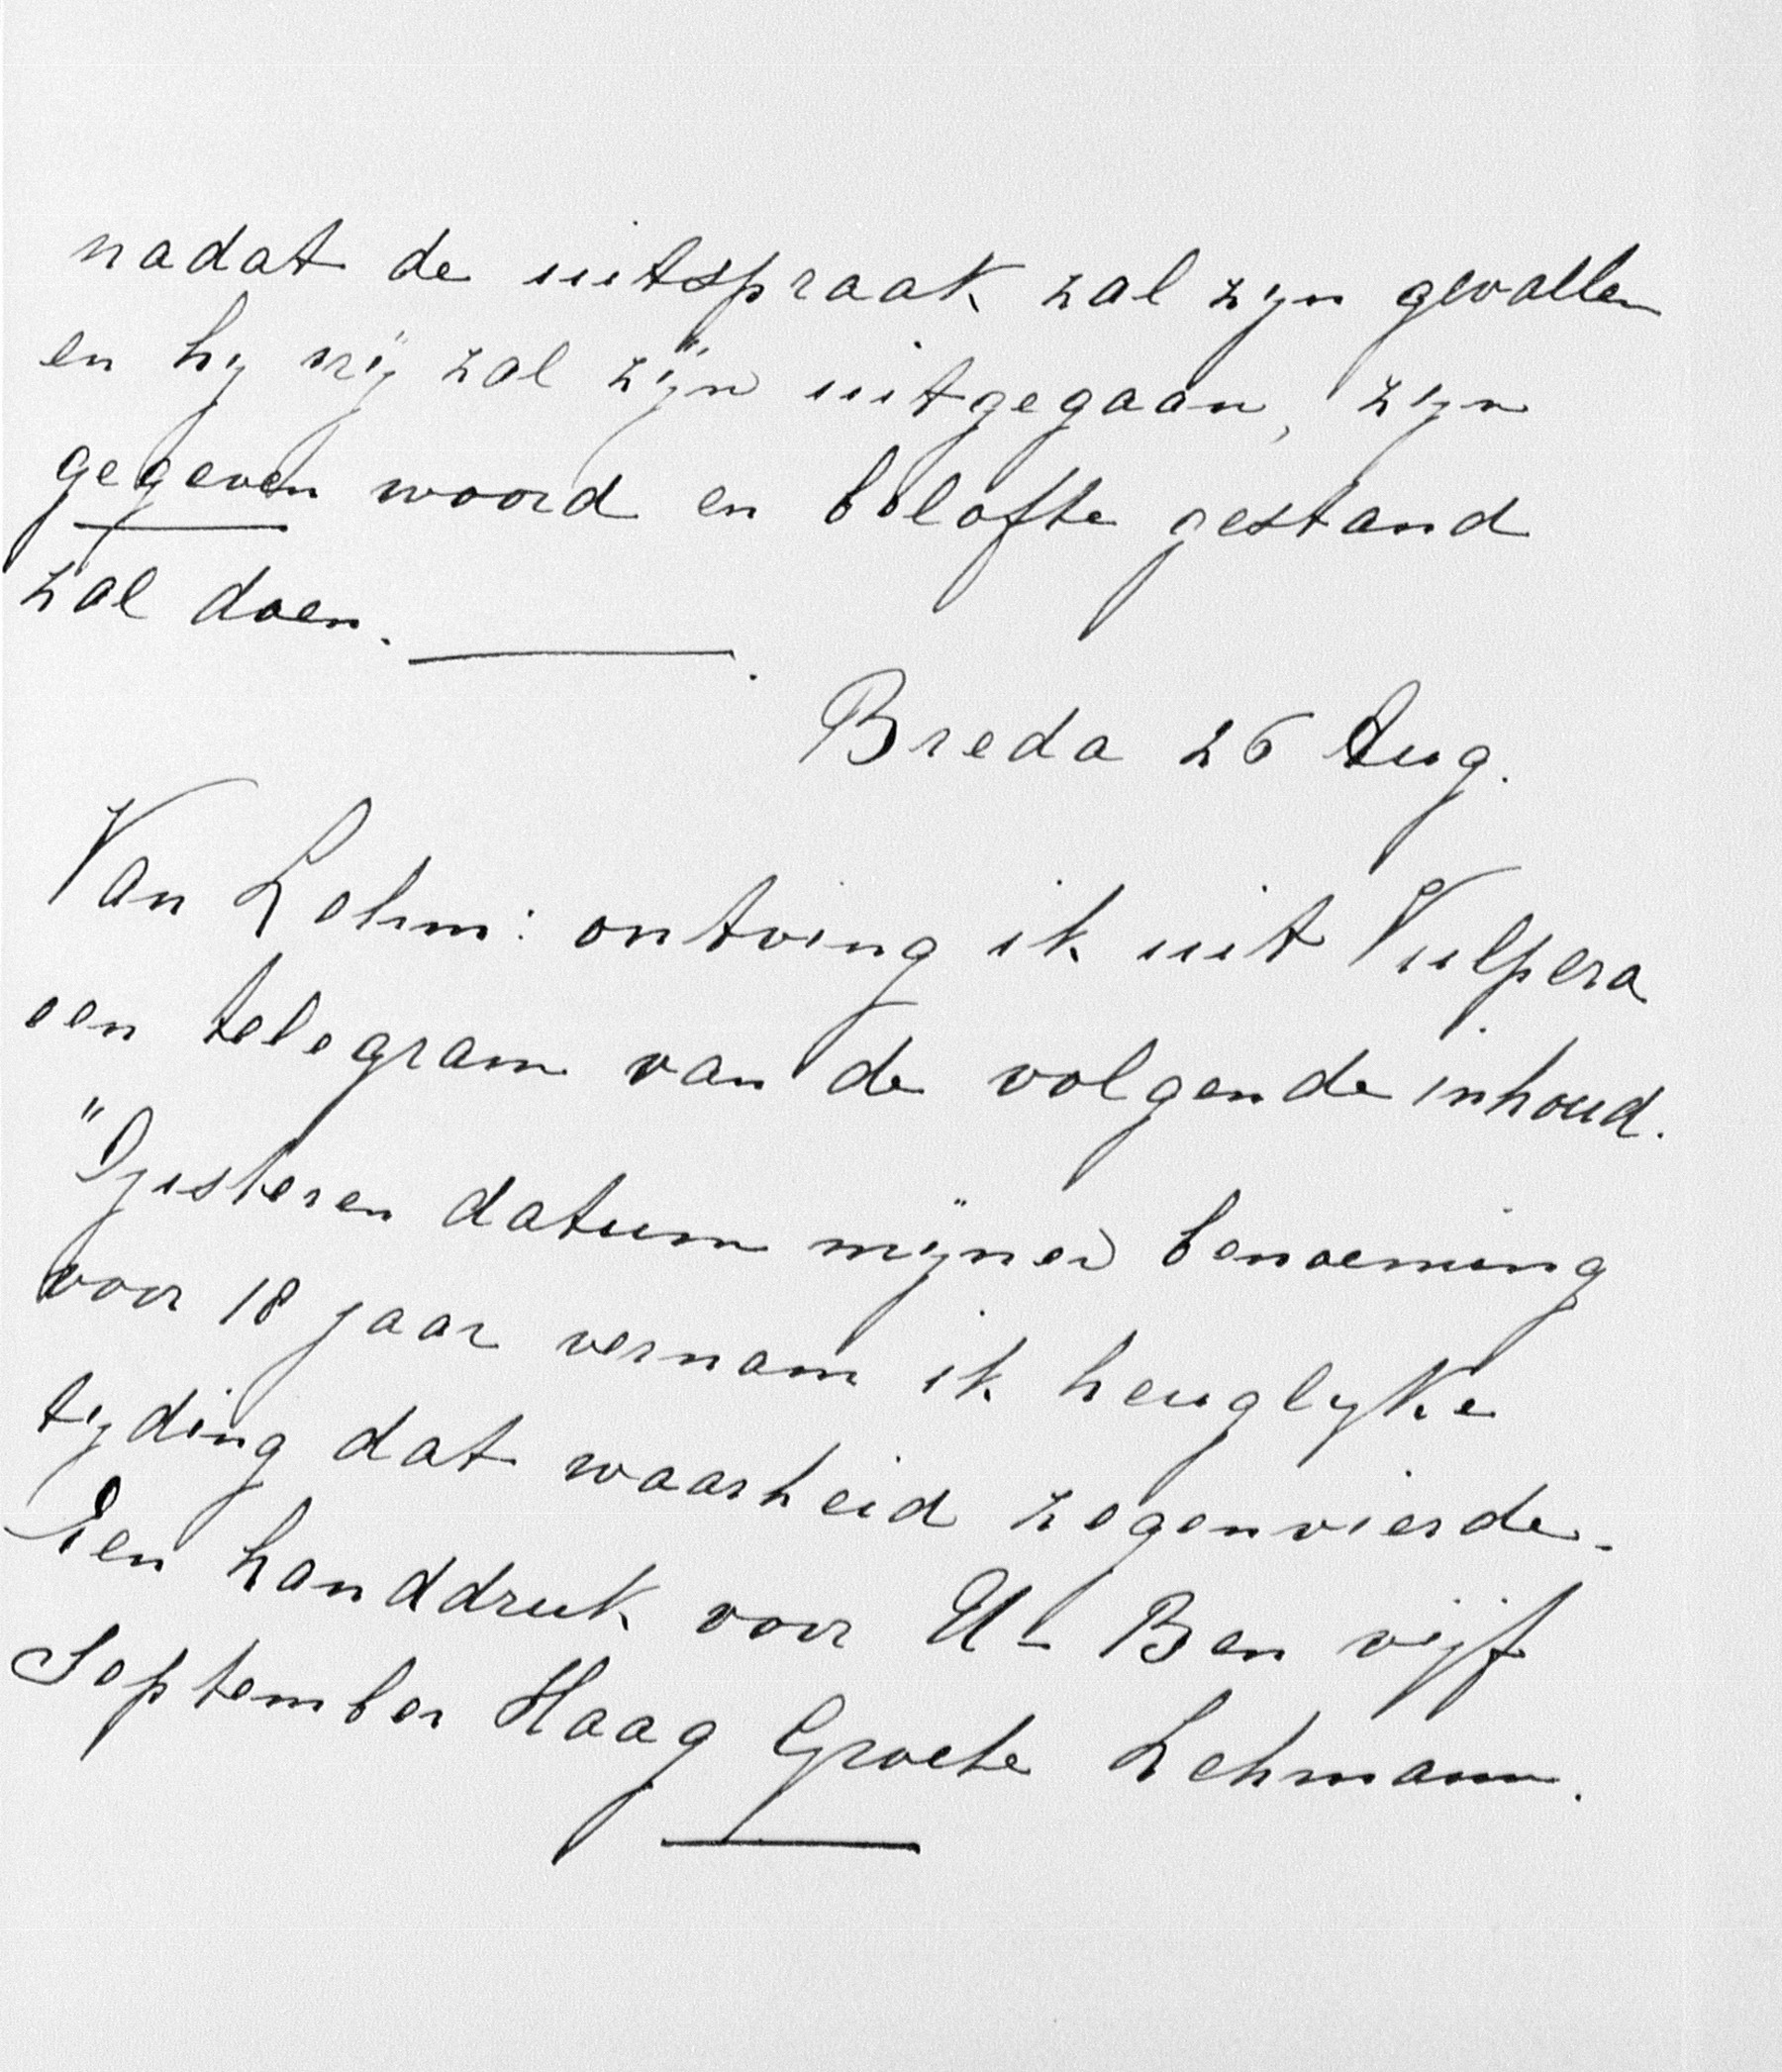 nadat de uitspraak zal zijn gevallen
en hij vrij zal zijn uitgegaan, zijn
gegeven woord en belofte gestand
zal doen. ———.
Breda 26 Aug.
Van Lehm: ontving ik uit Vulpera
een telegram van de volgende inhoud.
"Gisteren datum mijner benoeming
voor 18 jaar vernam ik heuglijke
tijding dat waarheid zegenvierde.
Een handdruk voor U - Ben vijf
September Haag Groete Lehmann.